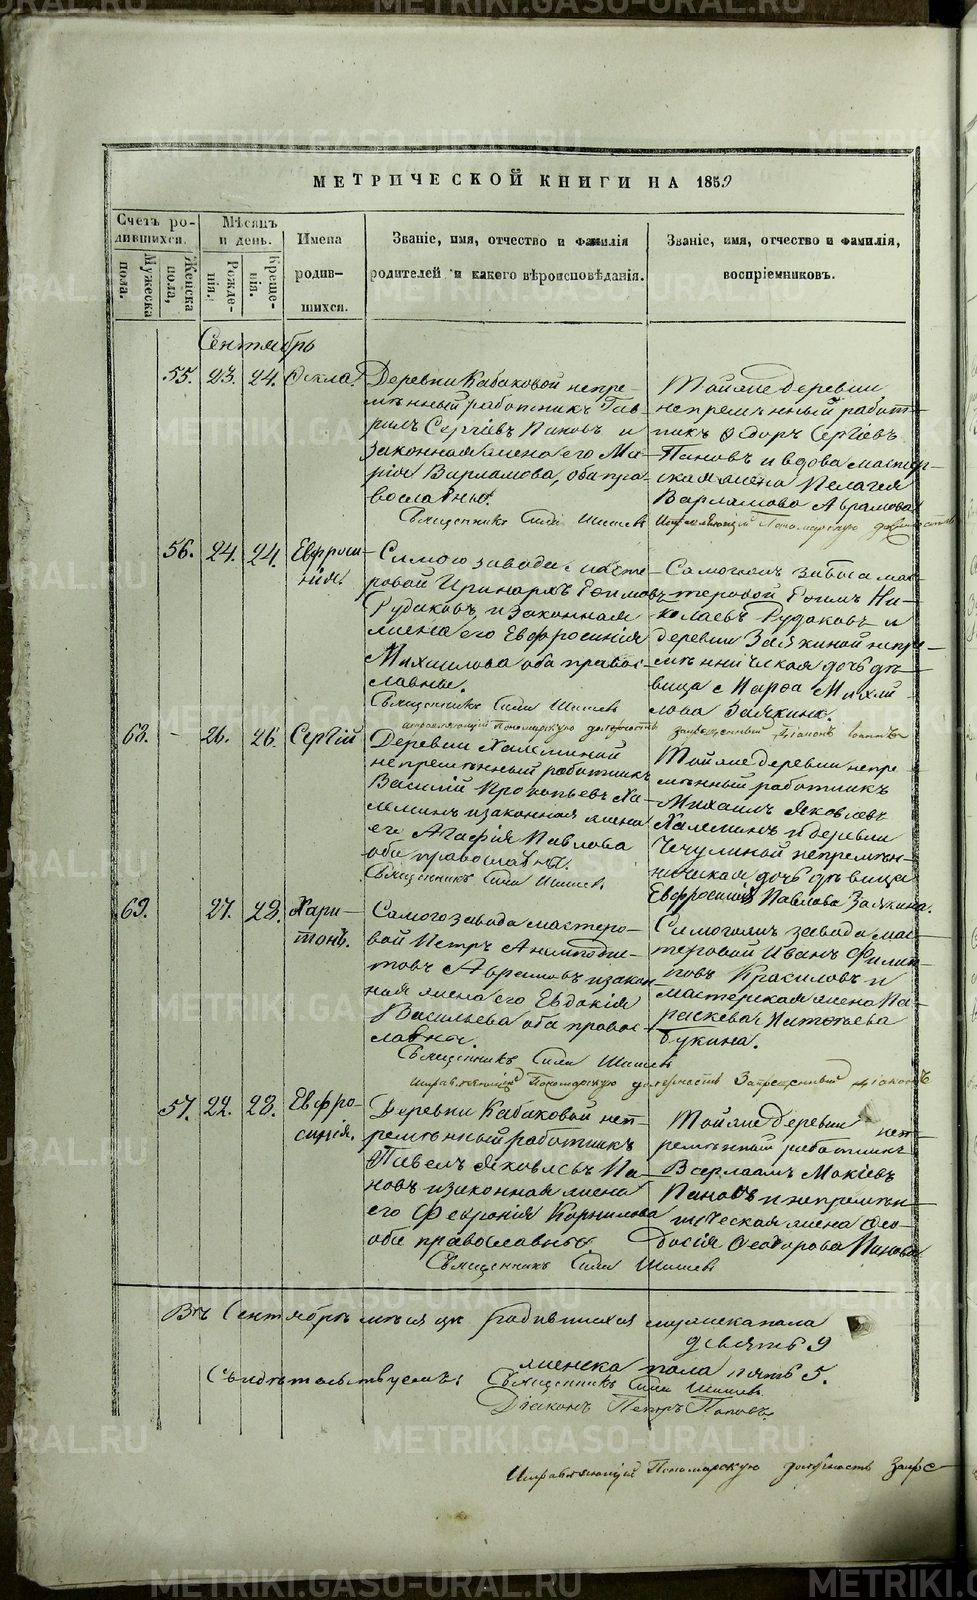 МЕТРИЧЕСКОЙ КНИГИ НА 1859
Счетъ ро-
дившихся.
Мужеска
пола.
Женска
пола.
Мѣсяцъ
и день.
Рожде-
нія.
Креще-
нія.
Имена
родив-
шихся.
Званіе, имя, отчество и фамилія
родителей и какого вѣроисповѣданія.
Званіе, имя, отчество и фамилія,
воспріемниковъ.
Сентябрь
55. 23. 24. Ѳекла.
Деревни Кабаковой непре-
мѣнный работникъ Гав-
рилъ Сергіевъ Пановъ и
законная жена его Ма-
рія Варламова, оба пра-
вославные.
Священникъ Сила Шишев
Тойже деревни
непремѣнный работ-
никъ Ѳедоръ Сергіевъ
Пановъ и вдова мастер-
ская жена Пелагея
Варламова Аврамова
Исправляющій Пономарскую должность
56. 24. 24. Евфроси-
нія.
Самого завода масте-
ровой Иринархъ Ефимовъ
Рудаковъ и законная
жена его Евфросинія
Михайлова оба правос-
лавные.
Священникъ Сила Шишев
исправляющій Пономарскую должность запрещенный діаконъ
Самогожъ завода мас-
теровой Ефимъ Ни-
колаевъ Рудаковъ и
деревни Заякиной непре-
мѣнническая дочь дѣ-
вица Марѳа Михай-
лова Заякина.
68. - 26. 26. Сергій
Деревни Халеминой
непремѣнный работникъ
Василій Прокопьевъ Ха-
леминъ и законная жена
его Агафія Павлова
оба православные.
Священникъ Сила Шишев
Тойже деревни непре-
мѣнный работникъ
Михаилъ Яковлевъ
Халеминъ и деревни
Чечулиной непремѣн-
ническая дочь дѣвица
Евфросинія Павлова Заякина.
69. 27. 28. Хари-
тонъ.
Самого завода мастеро-
вой Петръ Анемподис-
товъ и закон-
ная жена его Евдокія
Васильева оба правос-
лавные.
Священникъ Сила Шишев
Исправляющій Пономарскую должность Запрещенный діаконъ
Самогожъ завода мас-
теровой Иванъ Филип-
повъ Красиловъ и
мастерская жена Па-
раскева
Букина.
57. 22. 28. Евфро-
синія.
Деревни Кабаковой неп-
ремѣнный работникъ
Павелъ Яковлевъ Па-
новъ и законная жена
его Февронія Корнилова
оба православные
Священникъ Сила Шишев
Тойже деревни неп-
ремѣнный работникъ
Варлаамъ Мокіевъ
Пановъ и непремѣнни-
ческая жена Ѳео-
досія Ѳеодорова Панова
Въ Сентябрѣ мѣсяцѣ родившихся мужеска пола
девять 9
женска пола пять 5.
Свидѣтельствуемъ: Священникъ Сила Шишев
Діаконъ Петръ Поповъ.
Исправляющій Пономарскую должность Запре-